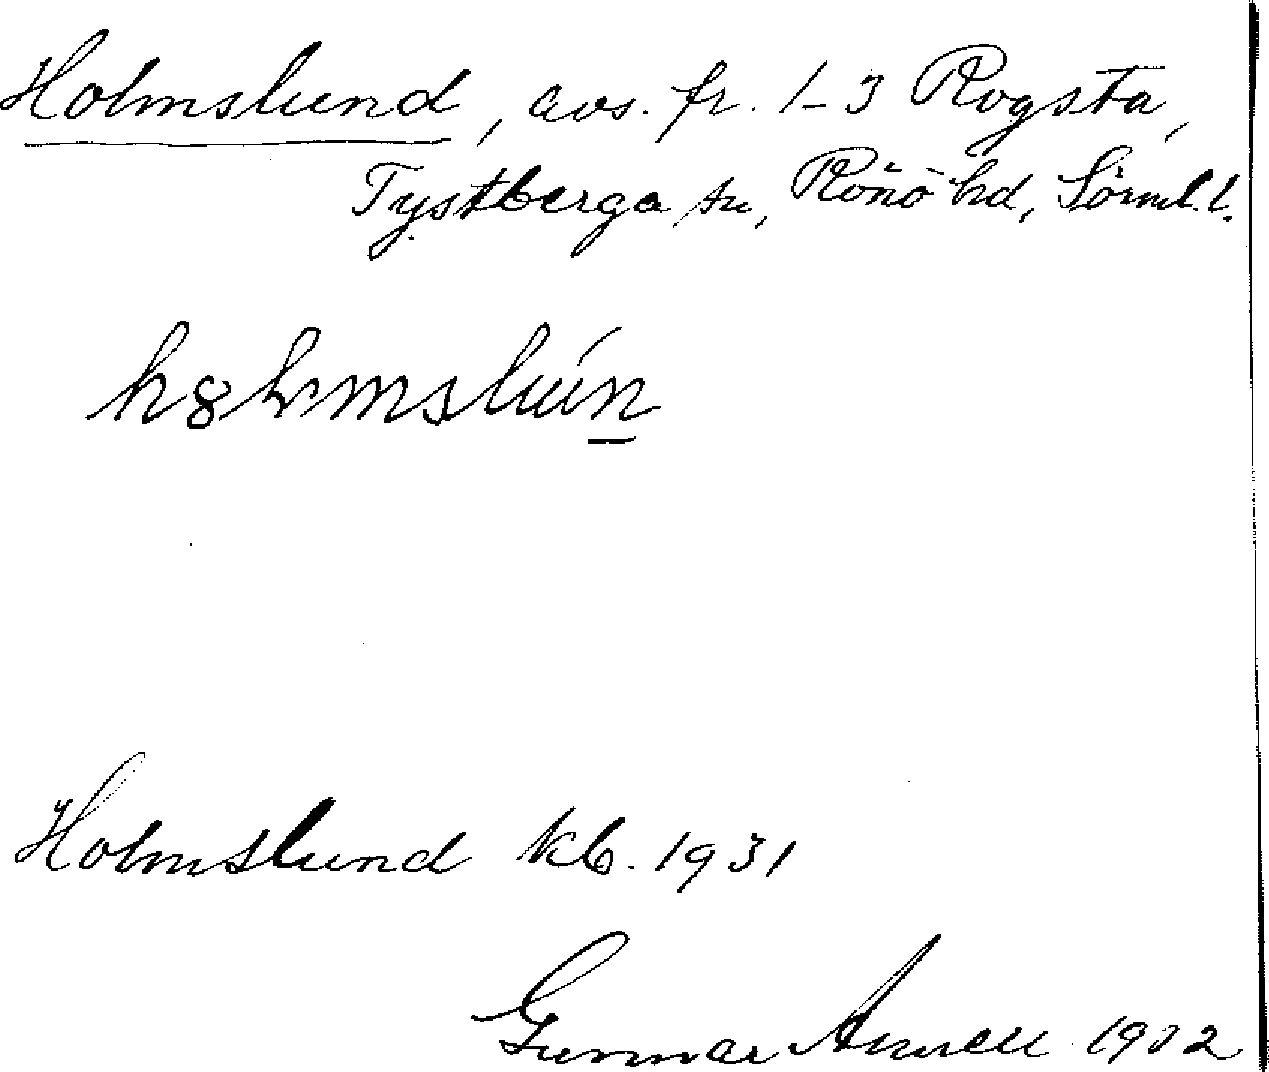 Holmslund, avs. fr. 1-3 Rogsta,
Tystberga sn, Rönö hd, Sörml. l.
Holmslund kb. 1931
Gunnar 1932